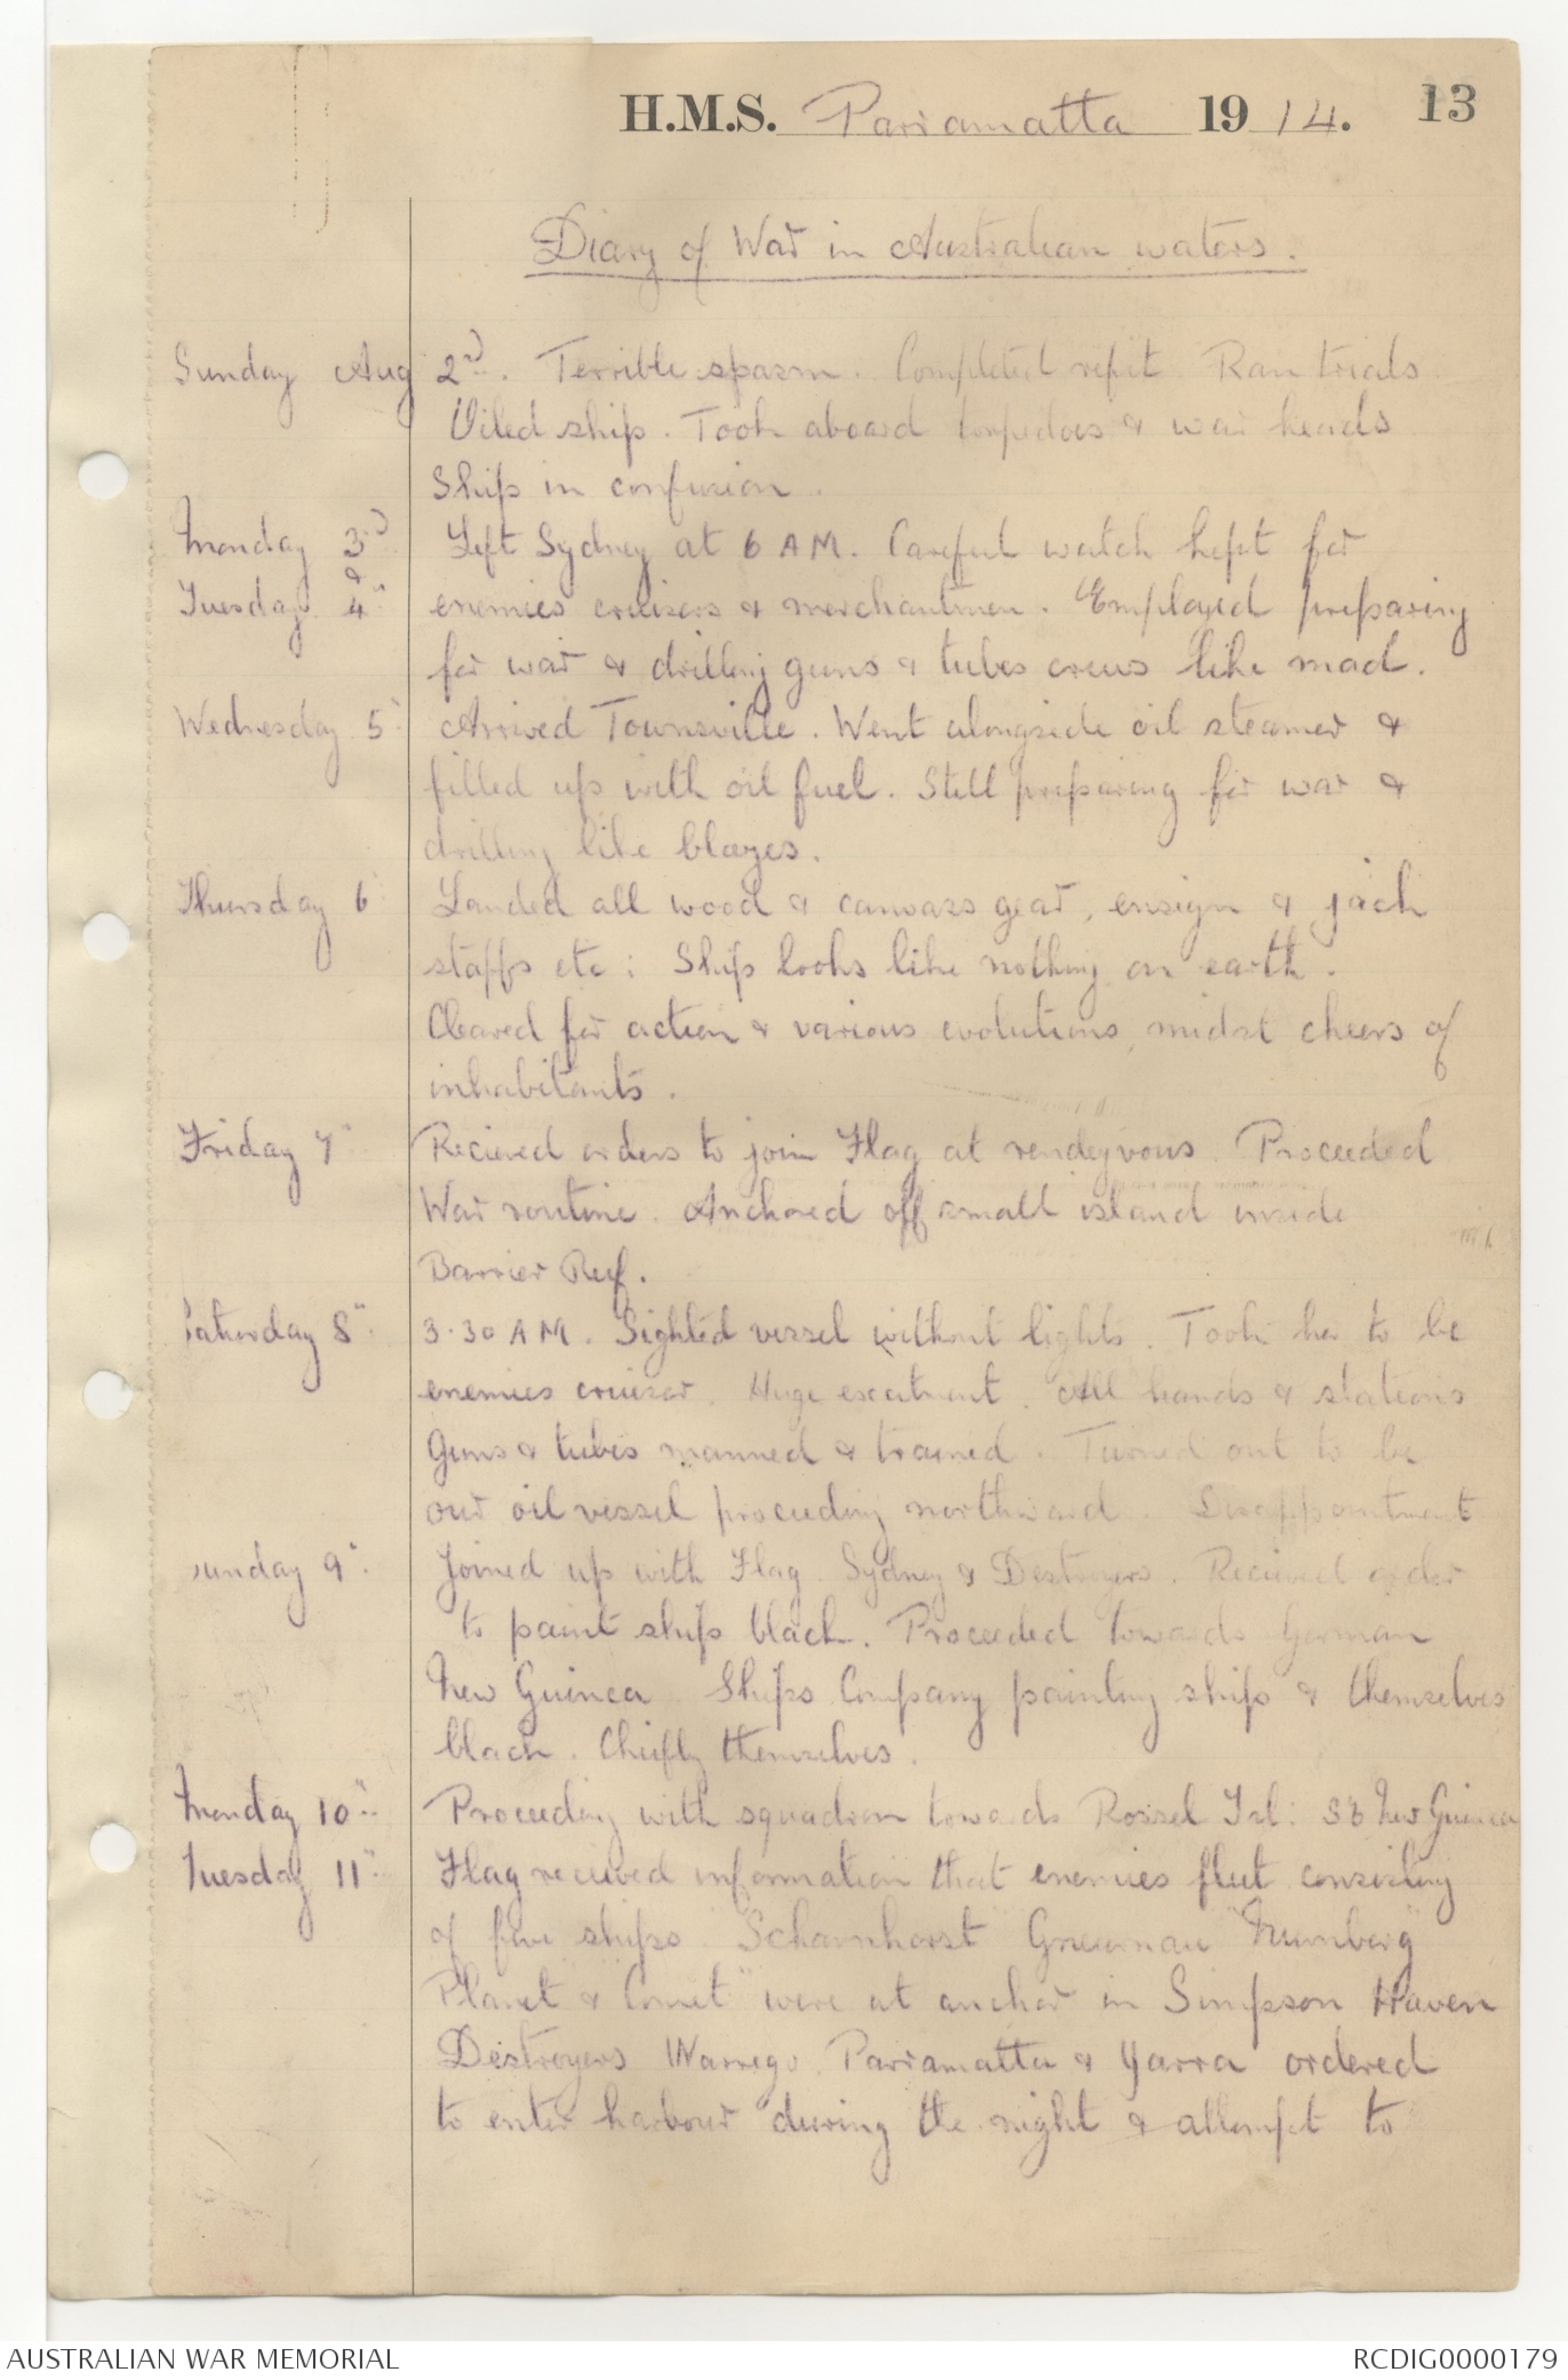 H.M.S. Parramatta 1914. 13
Diary of War in Australian waters.
Sunday Aug 2nd. Terrible spasm. Completed refit Ran trials
Oiled ship. Took aboard torpedoes & war heads
Ship in confusion.
Monday 3rd Left Sydney at 6 AM. Careful watch kept for
&
Tuesday 4" enemies cruisers & merchantmen. Employed preparing
for war & drilling guns & tubes crews like mad.
Wednesday 5" Arrived Townsville. Went alongside oil steamer &
filled up with oil fuel. Still preparing for war &
drilling like blazes.
Thursday 6" Landed all wood & canvass gear, ensign & jack
staffs etc: Ship looks like nothing on earth.
Cleared for action & various evolutions, midst cheers of
inhabitants.
Friday 7" Recieved orders to join Flag at rendezvous. Proceeded
War routine. Anchored off small island inside
Barrier Reef.
Saturday 8". 3.30 AM. Sighted vessel without lights. Took her to be
enemies cruiser. Huge excitment. All hands & stations
Guns & tubes manned & trained. Turned out to be
our oil vessel proceeding northward. Disappointment
Sunday 9". Joined up with Flag. Sydney & Destroyers. Recieved order
to paint ship black. Proceeded towards German
New Guinea Ships Company painting ship & themselves
black. Chiefly themselves.
Monday 10" Proceeding with squadron towards Rossel Isl: S'b New Guinea
Tuesday 11" Flag recieved information that enemies fleet consisting
of five ships "Scharnhorst" Gneisenau "Nurnberg"
Planet & Comet" were at anchor in Simpson Haven
Destroyers Warrego. Parramatta & Yarra ordered
to enter harbour during the night & attempt to
AUSTRALIAN WAR MEMORIAL RCDIG0000179